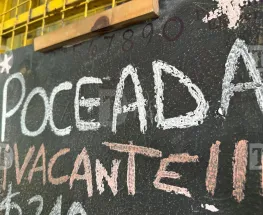 7890
POCEADA
¡VACANTE!!!